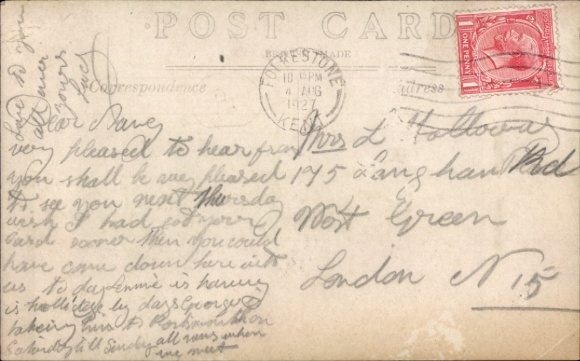 POST CARD
BRITISH MADE
Correspondence
Address
FOLKESTONE
10 PM
4 AUG
1927
KENT
ONE PENNY
Dear Dave
very pleased to hear from
you shall be very pleased
to see you next Thursday
wish I had got your
card sooner then you could
have come down here with
us to day Ernie is having
is holliday by days George is
takeing him to Portsmouth on
Saturday till Sunday all news when
we meet
love to you
all ever
yours
Mrs L Holloway
175 Langham Rd
West Green
London N 15